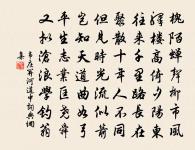 槐陌蟬聲柳市風
驛樓高倚夕陽東
往來千里路長在
聚散十年人不同
但見時光流似箭
豈知天道曲如弓
平生志業匡堯舜
又擬滄浪學釣翁
韋莊關河道中詞典網
集